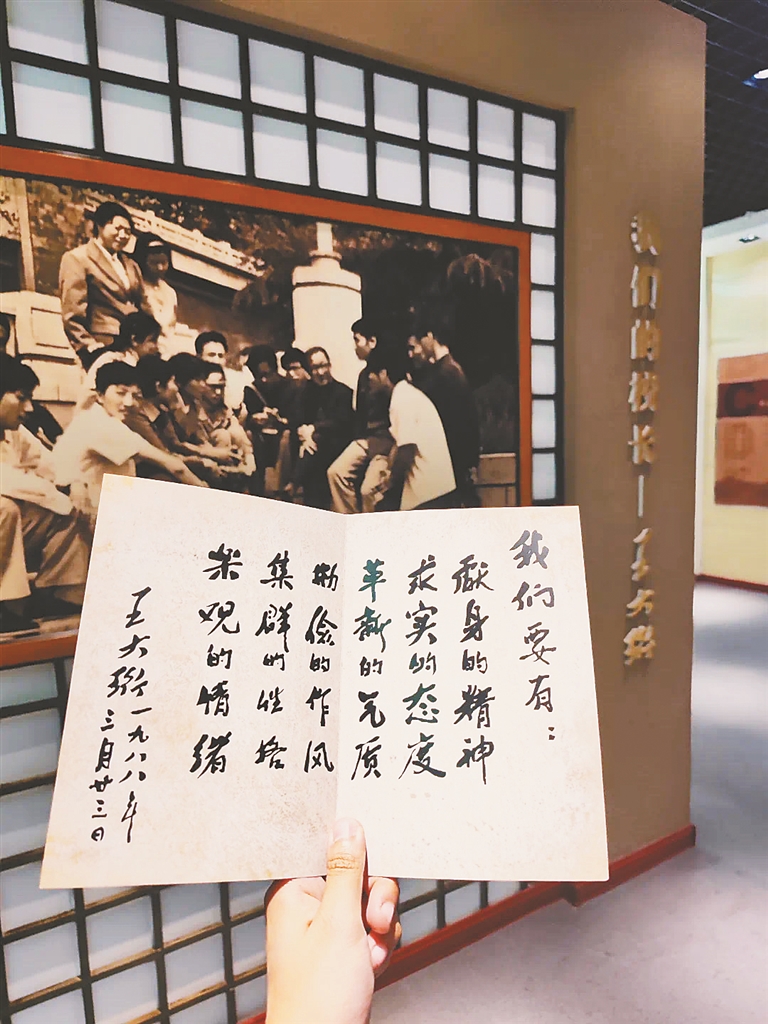 我们的校长—王大珩
我们要有：
獻身的精神
求实的态度
革新的气质
勤儉的作风
集群的性格
樂观的情绪
王大珩一九八八年
三月廿三日